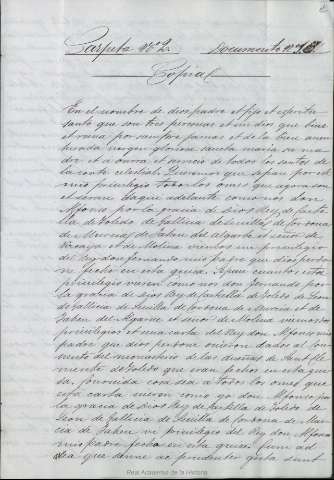 Carpeta Nº 2. Documento nº
Copia
En el nombre de dios padre et fijo et espiritu
santo que son tres personas et un dios que bive
et reina por siempre jamas et de la bien aven
turada virgen gloriosa sancta maria su ma
dre et a onrra et servicio de todos los santos de
la corte celestial. Queremos que sepan por est
mio privilegio todos los omes que agora son
et seran daqui adelante como nos don
Alfonso por la gracia de dios Rey de Caste
lla de Toledo de Gallicia de Sevilla de Cordova
de Murcia de Jahen del Algarbe et señor de
Viscaya et de Molina viemos un privilegio
del Rey don fernando mio padre que dios perdo
ne fecho en esta guisa. Sepan cuantos este
privilegio vieren como nos don fernando por
la gracia de dios Rey de Castella de Toledo de Leon
de Gallicia de Sevilla de Cordova de Murcia et de
Jahen del Algarve et señor de Molina viemos
privilegios et una carta del Rey don Alfonso
padre que dios perdone en dados al
mento del monasterio de las dueñas de Sant
mente de Toledo que eran fechos en esta gui
sa. conoscida cosa sea a todos los omes que
esta carta vieren como yo don Alfonso por
la gracia de dios Rey de Castella de Toledo de
Leon de Gallicia de Sevilla de Cordova de Mur
cia de Jahen vi privilegio del Rey don
mio padre fecho en esta guisa
sea que
Real Academia de la Historia